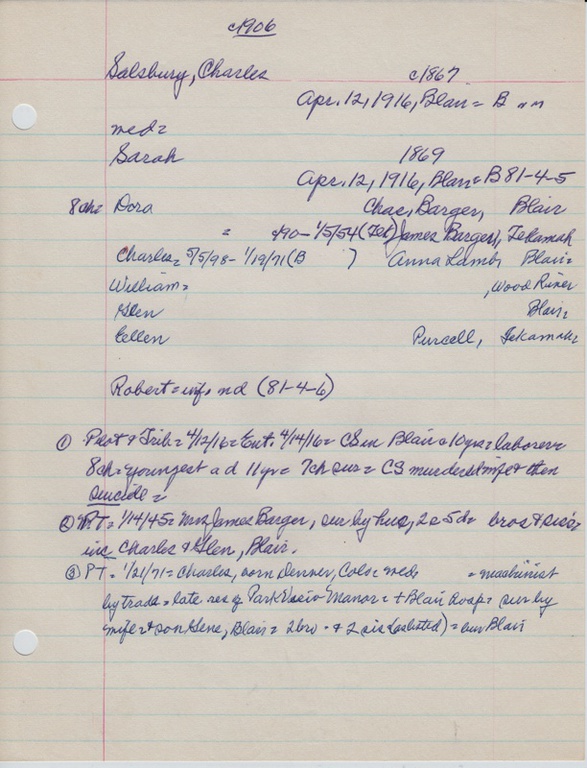 c1906
Salsbury, Charles c1867
Apr. 12, 1916, Blair = B " "
med=
Sarah 1869
Apr. 12, 1916, Blair = B 81-4-5
8ch= Dora Chas, Barger, Blair
= c90 - 1/5/54 (Tek) James Barger), Tekamah
Charles = 5/5/98 - 1/19/71 (B ) Anna Lamb, Blair=
William= , Wood River
Glen Blair=
Eellen Purcell, Tekamah=
Robert = inf, nd (81-4-6)
① Pilot & Trib = 4/12/16 = Ent. 4/14/16 = CS in Blair c10yrs = laborer =
8ch = youngest a d 11yr = 7ch sur = CS murdered wife & then
suicide =
② PT = 1/14/45 = Mrs James Barger, sur by hus, 2s 5d = bros & sis =
inc Charles & Glen, Blair.
③ PT = 1/21/71 = Charles, born Denver, Colo = med = machinist
by trade = late res of Park View Manor = + Blair Hosp = sur by
wife & son Gene, Blair = 2 bro & 2 sis (as listed) = bur Blair